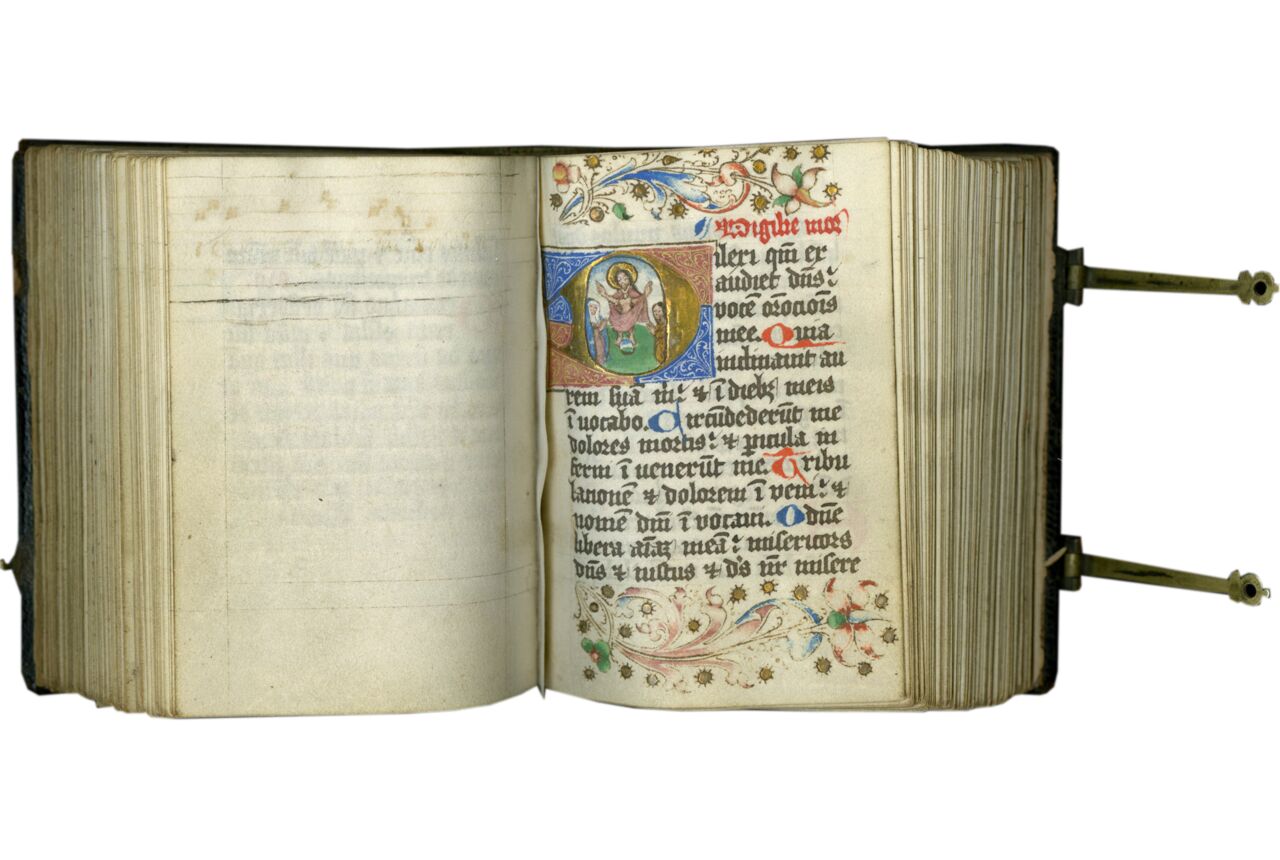 Vigilie mor
Dileri qm̄ ex
audiet dn̄s:
vocē or̄ociōis
mee. Quia
inclinauit au
rem suā m̄: & ī diebꝫ meis
ī uocabo. Circūdederūt me
dolores mortis: & ꝑicula in
ferni ī uenerūt me. Tribu
lationē & dolorem ī veni: &
nomē dn̄i ī vocaui. O dn̄e
libera aīaꝫ meā: misericors
dn̄s & iustus & d's nr̄ misere